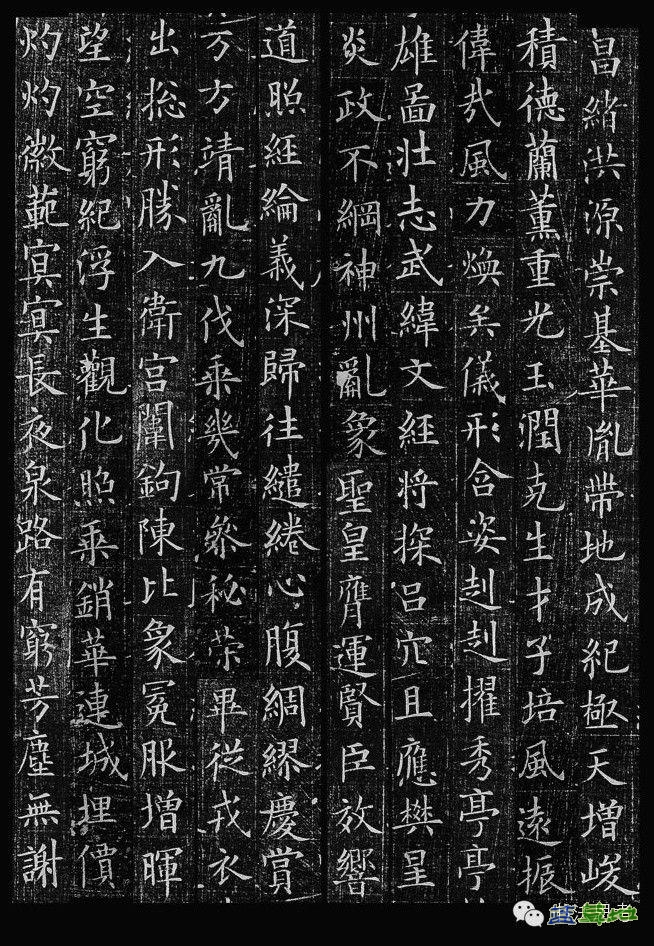 昌緒洪源崇基華胤帶地成紀極天增峻
積德蘭薰重光玉潤克生才子培風遠振
偉哉風力煥矣儀形含姿赳赳擢秀亭亭
雄圖壯志武緯文經將探呂穴且應樊星
炎政不綱神州亂象聖皇膺運賢臣效響
道照經綸義深歸往繾綣心腹綢繆慶賞
万方靖亂九伐乘幾常參秘策畢從戎衣
出揔形勝入衛宮闈鉤陳比象冕服增暉
望空窮紀浮生觀化照乘銷華連城埋價
灼灼徽範冥冥長夜泉路有窮芳塵無謝